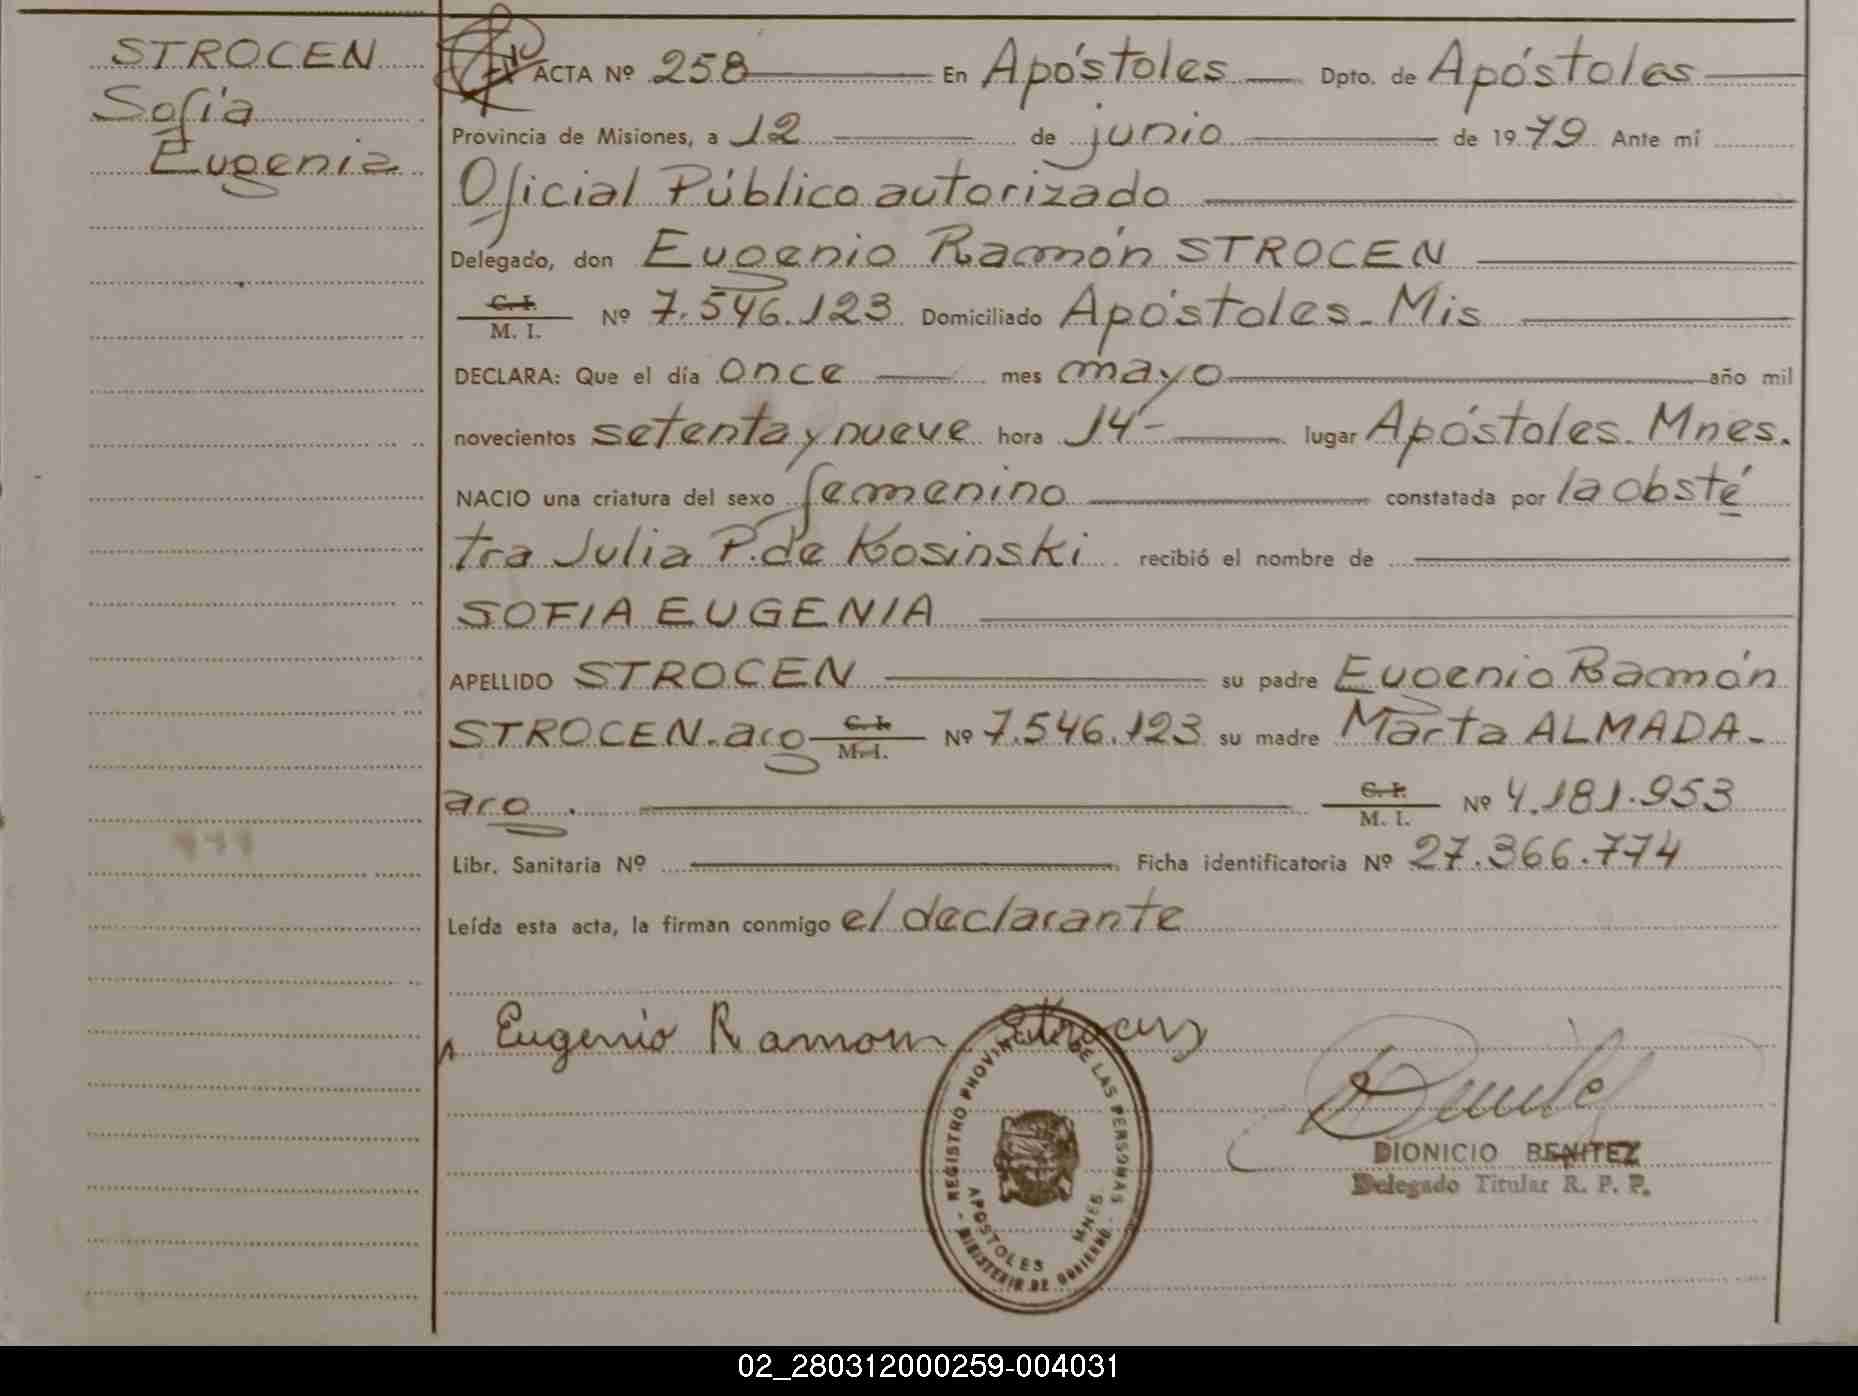 STROCEN
Sofía
Eugenia
ACTA Nº 258 En Apóstoles Dpto. de Apóstoles
Provincia de Misiones, a 12 de junio de 1979 Ante mí
Oficial Público autorizado
Delegado, don Eugenio Ramón STROCEN
C. I.
M. I. Nº 7.546.123 Domiciliado Apóstoles. Mis
DECLARA: Que el día once mes mayo año mil
novecientos setenta y nueve hora 14- lugar Apóstoles. Mnes.
NACIO una criatura del sexo femenino constatada por la obsté
tra Julia P. de Kosinski recibió el nombre de
SOFIA EUGENIA
APELLIDO STROCEN su padre Eugenio Ramón
STROCEN. arg C. I. M. I. Nº 7.546.123 su madre Marta ALMADA-
arg. C. I. M. I. Nº 4.181.953
Libr. Sanitaria Nº Ficha identificatoria Nº 27.366.774
Leída esta acta, la firman conmigo el declarante
Eugenio Ramon
REGISTRO PROVINCIAL DE LAS PERSONAS
APOSTOLES MNES.
- MINISTERIO DE GOBIERNO -
DIONICIO BENITEZ
Delegado Titular R. P. P.
02_280312000259-004031